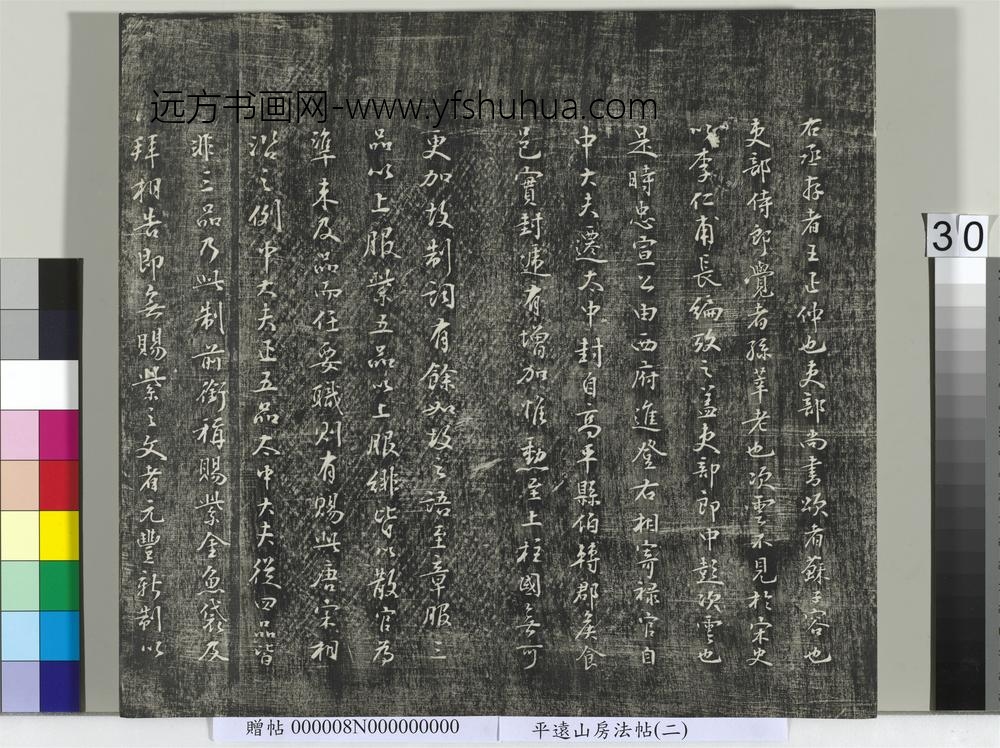 远方书画网-www.yfshuhua.com
右丞存者王正仲也吏部尚書頌者蘇子容也
吏部侍郎覺者孫莘老也次雲不見於宋史
以李仁甫長編攷之蓋吏部郎中彭次雲也
是時忠宣公由西府進登右相寄禄官自
中大夫遷太中封自高平縣伯轉郡矦食
邑實封遞有增加惟勳至上柱國無可
更加故制詞有餘如故之語至章服三
品以上服紫五品以上服緋皆以散官為
準未及品而任要職則有賜此唐宋相
沿之例中大夫正五品太中大夫從四品皆
非三品乃此制前銜稱賜紫金魚袋及
拜相告即無賜紫之文者元豐新制以
30
贈帖 000008N000000000
平遠山房法帖(二)